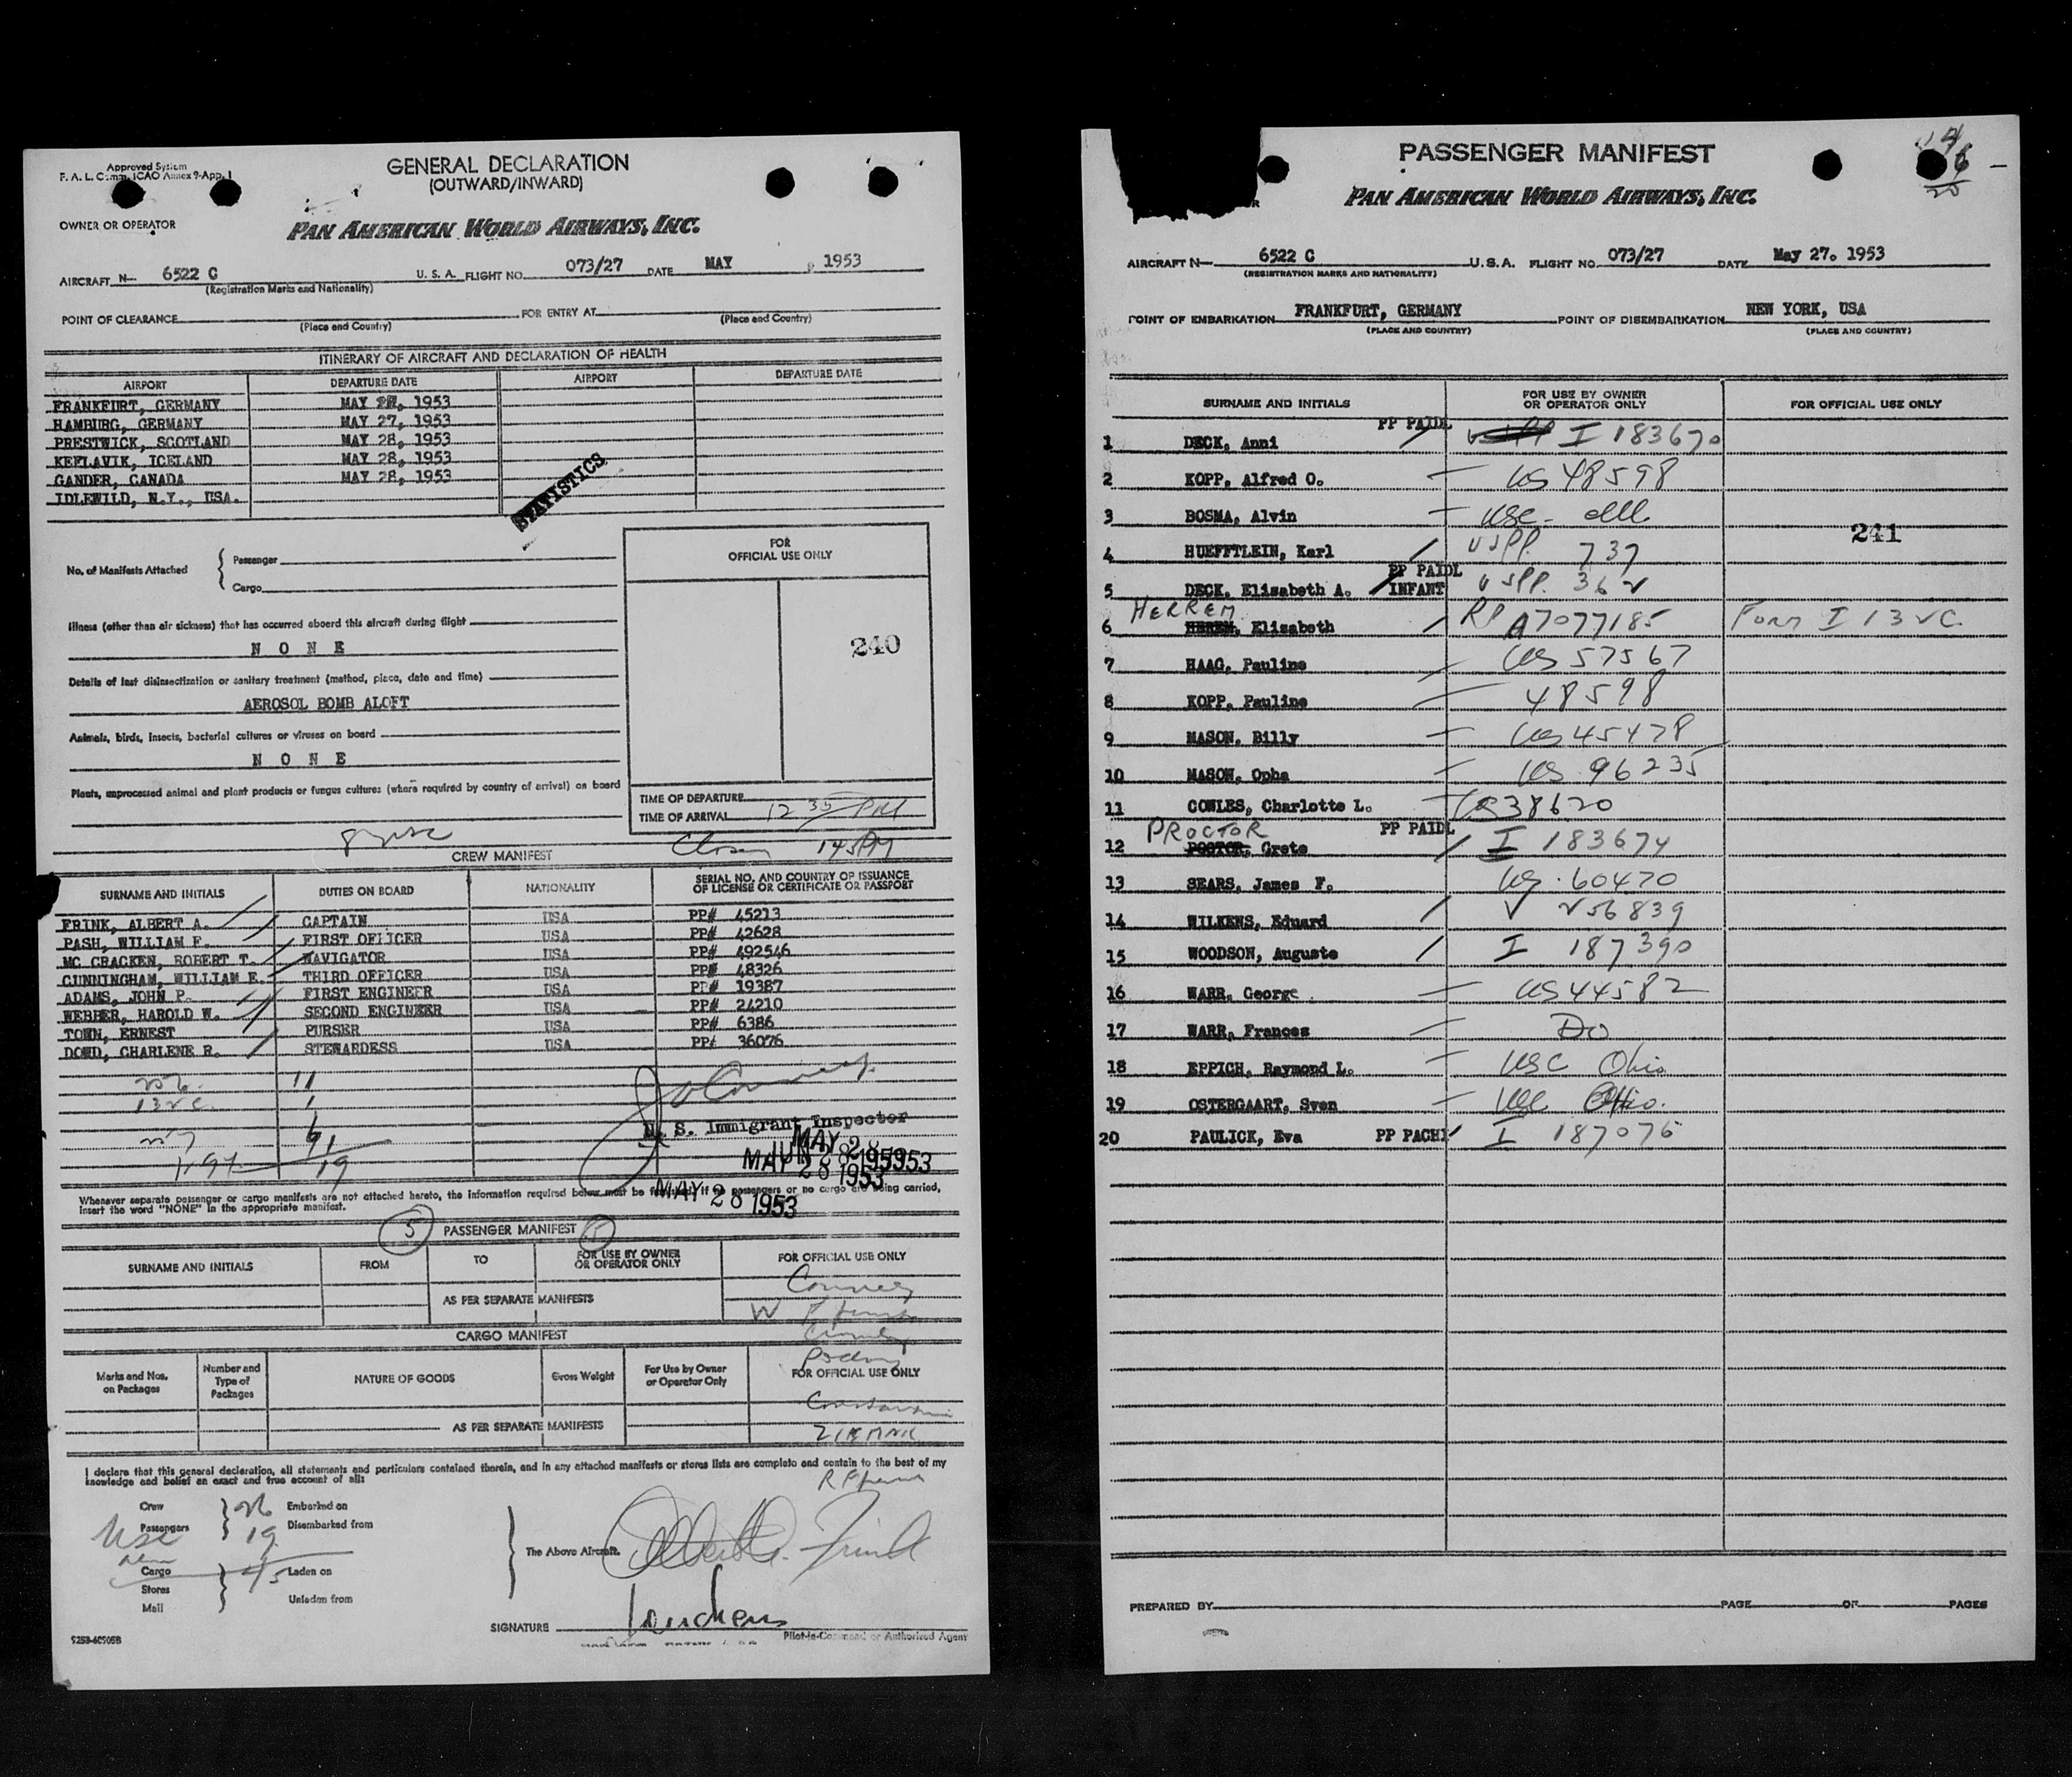 Approved System
F. A. L. Comm. ICAO Annex 9-App. 1
GENERAL DECLARATION
(OUTWARD/INWARD)
OWNER OR OPERATOR
PAN AMERICAN WORLD AIRWAYS, INC.
AIRCRAFT N- 6522 C U. S. A. FLIGHT NO. 073/27 DATE MAY 1953
(Registration Marks and Nationality)
POINT OF CLEARANCE FOR ENTRY AT
(Place and Country) (Place and Country)
ITINERARY OF AIRCRAFT AND DECLARATION OF HEALTH
AIRPORT DEPARTURE DATE AIRPORT DEPARTURE DATE
FRANKFURT, GERMANY MAY 27, 1953
HAMBURG, GERMANY MAY 27, 1953
PRESTWICK, SCOTLAND MAY 28, 1953
KEFLAVIK, ICELAND MAY 28, 1953
GANDER, CANADA MAY 28, 1953
IDLEWILD, N.Y., USA.
STATISTICS
No. of Manifests Attached
Passenger
Cargo
FOR
OFFICIAL USE ONLY
240
Illness (other than air sickness) that has occurred aboerd this aircraft during flight
N O N E
Details of last disinsectization or sanitary treatment (method, place, date and time)
AEROSOL BOMB ALOFT
Animals, birds, insects, bacterial cultures or viruses on board
N O N E
Plants, unprocessed animal and plant products or fungus cultures (where required by country of arrival) on board
TIME OF DEPARTURE
TIME OF ARRIVAL 12 35 PM
145 PM
CREW MANIFEST
SURNAME AND INITIALS DUTIES ON BOARD NATIONALITY SERIAL NO. AND COUNTRY OF ISSUANCE
OF LICENSE OR CERTIFICATE OR PASSPORT
FRINK, ALBERT A. CAPTAIN USA PP# 45213
PASH, WILLIAM F. FIRST OFFICER USA PP# 42628
MC CRACKEN, ROBERT T. NAVIGATOR USA PP# 492546
CUNNINGHAM, WILLIAM E. THIRD OFFICER USA PP# 48326
ADAMS, JOHN P. FIRST ENGINEER USA PP# 19387
WEBBER, HAROLD W. SECOND ENGINEER USA PP# 24210
TOWN, ERNEST PURSER USA PP# 6386
DOWD, CHARLENE R. STEWARDESS USA PP# 36076
U. S. Immigrant Inspector
MAY 28 1953
MAY 28 1953
Whenever separate passenger or cargo manifests are not attached hereto, the information required below must be furnished. If no passengers or no cargo are being carried,
insert the word "NONE" in the appropriate manifest.
5 PASSENGER MANIFEST
SURNAME AND INITIALS FROM TO FOR USE BY OWNER
OR OPERATOR ONLY FOR OFFICIAL USE ONLY
AS PER SEPARATE MANIFESTS
CARGO MANIFEST
Marks and Nos.
on Packages Number and
Type of
Packages NATURE OF GOODS Gross Weight For Use by Owner
or Operator Only FOR OFFICIAL USE ONLY
AS PER SEPARATE MANIFESTS
I declare that this general declaration, all statements and particulars contained therein, and in any attached manifests or stores lists are complete and contain to the best of my
knowledge and belief an exact and true account of all:
Crew 26 Embarked on
Passengers 19 Disembarked from
Cargo 45 Laden on
Stores
Mail Unladen from
The Above Aircraft.
SIGNATURE
Pilot-in-Command or Authorized Agent
PASSENGER MANIFEST
PAN AMERICAN WORLD AIRWAYS, INC.
AIRCRAFT N- 6522 C U.S.A. FLIGHT NO. 073/27 DATE May 27. 1953
(REGISTRATION MARKS AND NATIONALITY)
POINT OF EMBARKATION FRANKFURT, GERMANY POINT OF DISEMBARKATION NEW YORK, USA
(PLACE AND COUNTRY) (PLACE AND COUNTRY)
SURNAME AND INITIALS FOR USE BY OWNER
OR OPERATOR ONLY FOR OFFICIAL USE ONLY
1 DECK, Anni PP PAIDL I 183670
2 KOPP, Alfred O. US 48598
3 BOSMA, Alvin USC
241
4 HUEFFTLEIN, Karl USPP. 737
5 DECK, Elisabeth A. PP PAIDL INFANT USPP. 36
6 HERREM, Elisabeth RP A7077185 Form I 132C
7 HAAG, Pauline US 57567
8 KOPP, Pauline 48598
9 MASON, Billy US 45478
10 MASON, Opha US 96235
11 COWLES, Charlotte L. US 38620
12 PROCTOR Grete PP PAIDL I 183674
13 SEARS, James F. US 60470
14 WILKENS, Eduard V 256839
15 WOODSON, Auguste I 187390
16 WARR, George US 44582
17 WARR, Frances Do
18 EPPICH, Raymond L. USC Ohio
19 OSTERGAART, Sven USC Ohio.
20 PAULICK, Eva PP PACHI I 187076
PREPARED BY PAGE OF PAGES